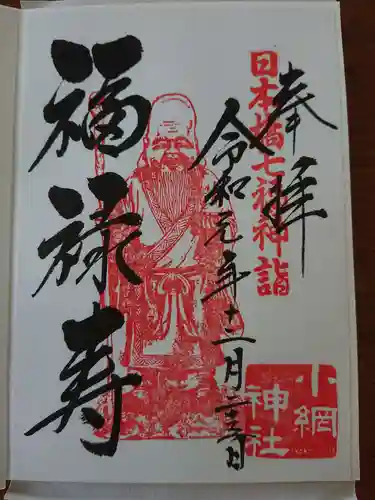 奉拝
日本橋七福神詣
令和元年十二月二十三日
福禄寿
小網
神社